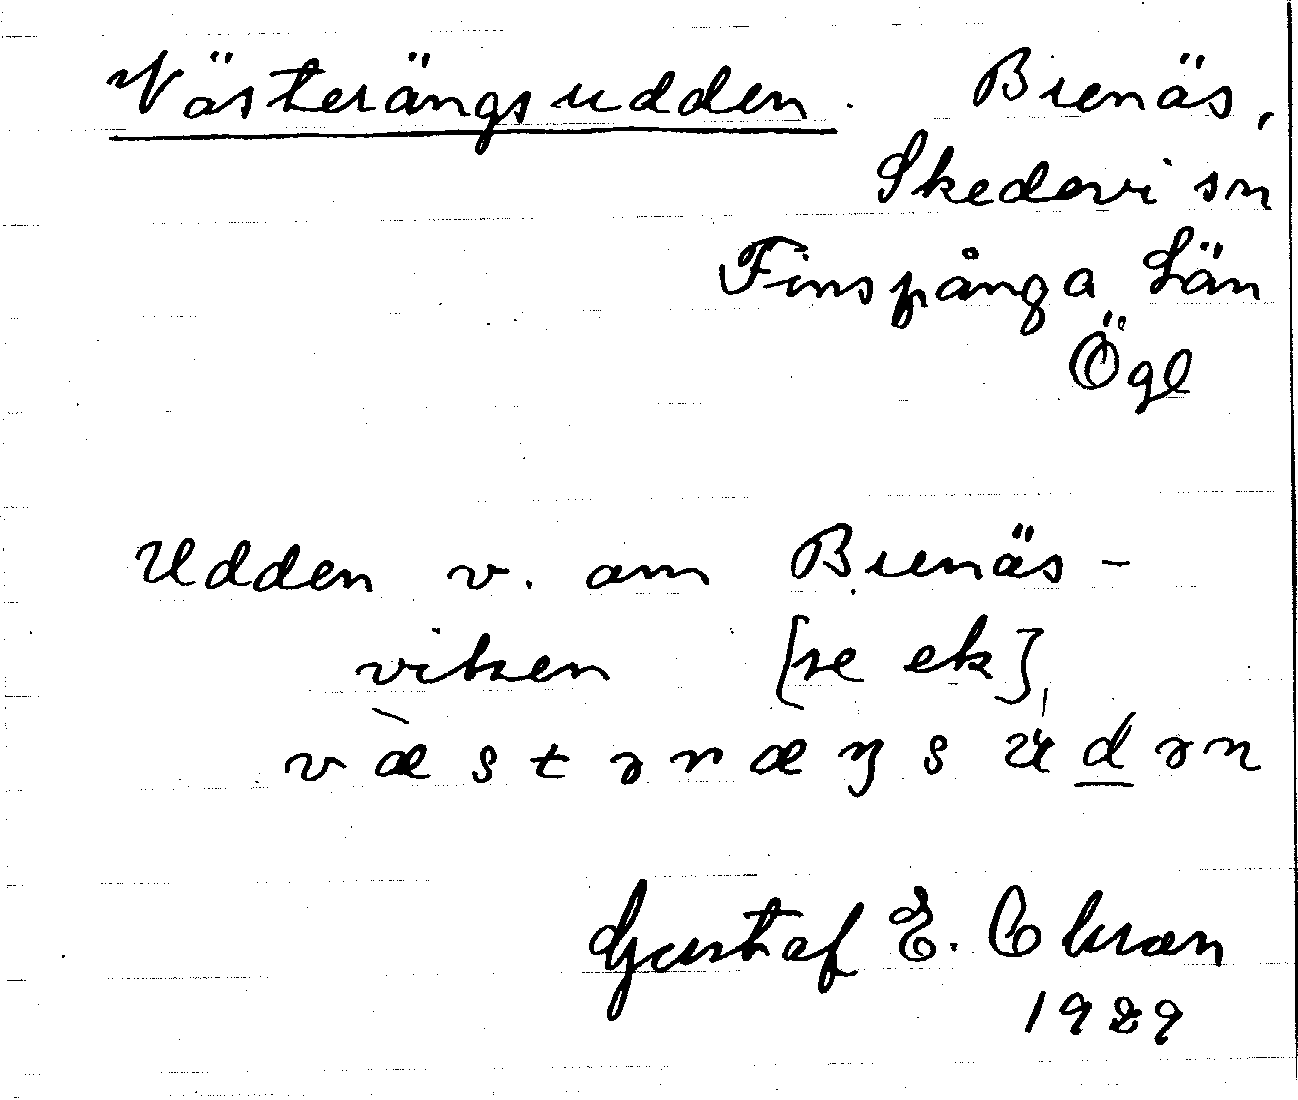 Västerängsudden. Brenäs,
Skedevi sn
Finspånga Län
Ögl
Udden v. om Brenäs-
viken [se ek]
v æ̀ s t ə r æ ŋ s ù d ə n
Gustaf E.
1929